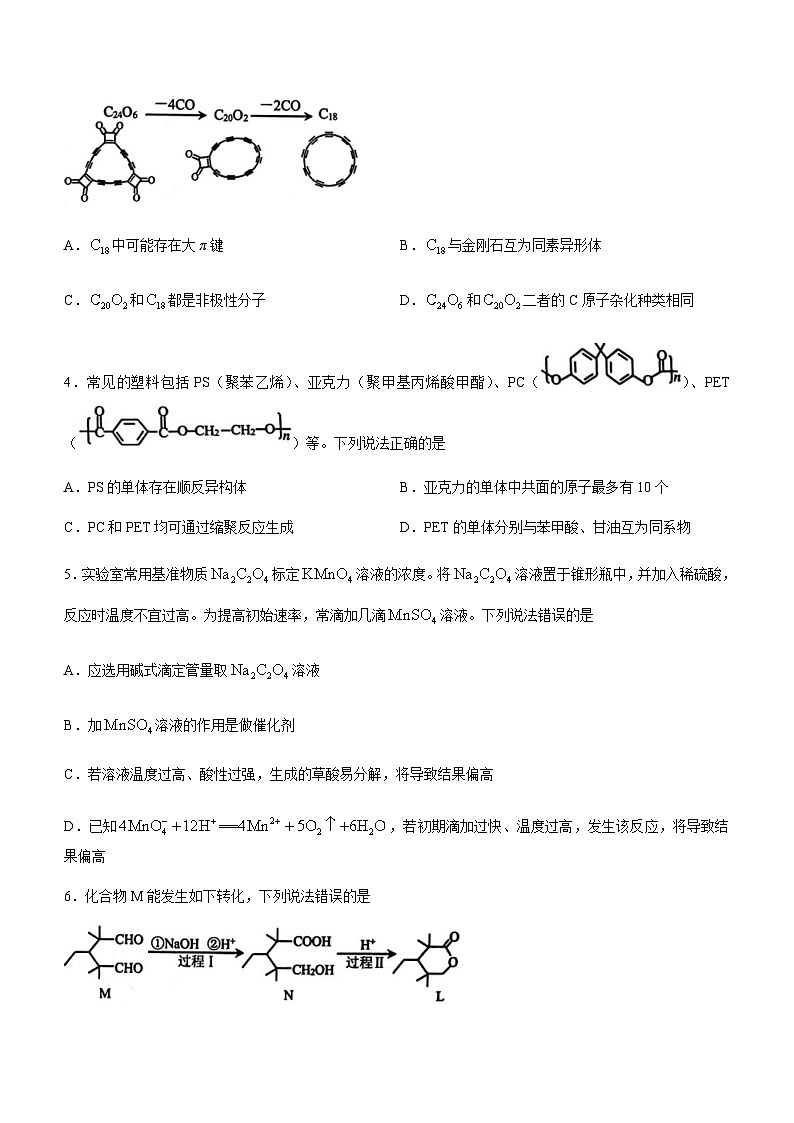 C₂₄O₆ —4CO→ C₂₀O₂ —2CO→ C₁₈
O O O O O O O O
A.C₁₈中可能存在大π键 B.C₁₈与金刚石互为同素异形体
C.C₂₀O₂和C₁₈都是非极性分子 D.C₂₄O₆和C₂₀O₂二者的C原子杂化种类相同
4.常见的塑料包括PS(聚苯乙烯)、亚克力(聚甲基丙烯酸甲酯)、PC([O O C O]n)、PET
([C O C O O—CH₂—CH₂—O]n)等。下列说法正确的是
A.PS的单体存在顺反异构体 B.亚克力的单体中共面的原子最多有10个
C.PC和PET均可通过缩聚反应生成 D.PET的单体分别与苯甲酸、甘油互为同系物
5.实验室常用基准物质Na₂C₂O₄标定KMnO₄溶液的浓度。将Na₂C₂O₄溶液置于锥形瓶中,并加入稀硫酸,
反应时温度不宜过高。为提高初始速率,常滴加几滴MnSO₄溶液。下列说法错误的是
A.应选用碱式滴定管量取Na₂C₂O₄溶液
B.加MnSO₄溶液的作用是做催化剂
C.若溶液温度过高、酸性过强,生成的草酸易分解,将导致结果偏高
D.已知4MnO₄⁻+12H⁺══4Mn²⁺+5O₂↑+6H₂O,若初期滴加过快、温度过高,发生该反应,将导致结
果偏高
6.化合物M能发生如下转化,下列说法错误的是
CHO ①NaOH ②H⁺ COOH H⁺ O
CHO 过程Ⅰ CH₂OH 过程Ⅱ O
M N L